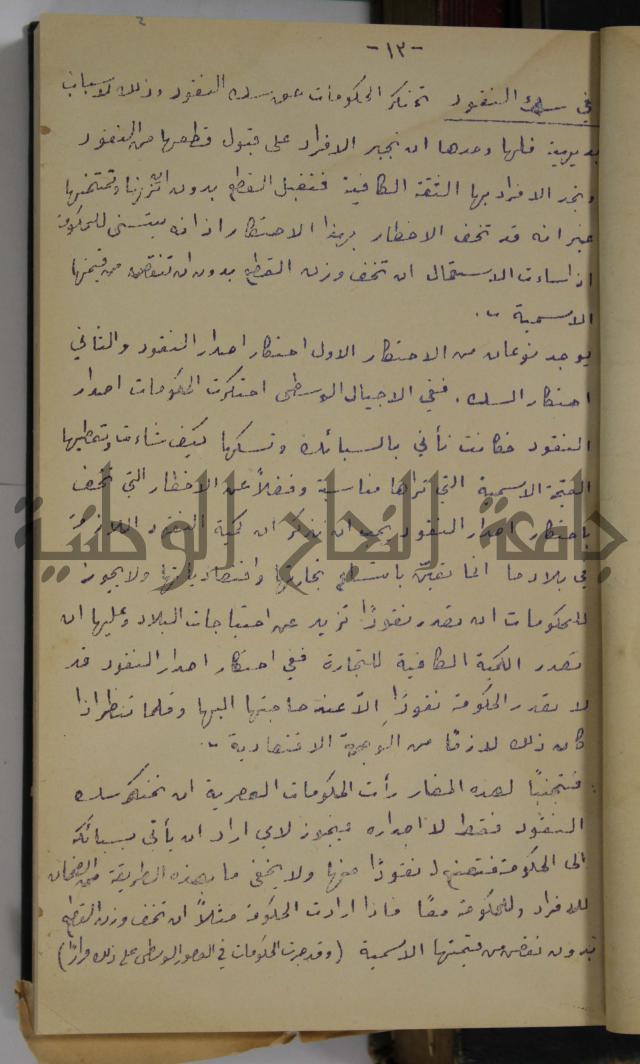 -١٣-
في سك النقود تحتكر الحكومات حق سك النقود وذلك لاسباب
بديهية فلها وحدها ان تجبر الافراد على قبول قطعها من النقود
وتجد الافراد بها الثقة الكافية فتقبل القطع بدون ان تزنها وتمتحنها
غير انه قد تحف الاخطار بهذا الاحتكار اذ انه يتسنى للحكومة
اذا اساءت الاستعمال ان تخف وزن القطع بدون ان تنقص من قيمتها
الاسمية .
يوجد نوعان من الاحتكار الاول احتكار اصدار النقود والثاني
احتكار السك . ففي الاجيال الوسطى احتكرت الحكومات اصدار
النقود فكانت تأتي بالسبائك وتسكها كيف شاءت وتعطيها
القيمة الاسمية التي تراها مناسبة وفضلاً عن الاخطار التي تحف
باحتكار اصدار النقود يجب ان نذكر ان كمية النقود اللازمة
في بلاد ما انما تتعين باتساع تجارتها واقتصادياتها ولا يجوز
للحكومات ان تصدر نقودًا تزيد عن احتياجات البلاد وعليها ان
تصدر الكمية الكافية للتجارة ففي احتكار اصدار النقود قد
لا تصدر الحكومة نقودًا إلاّ عند حاجتها اليها وقلما تنظر اذا
كان ذلك لازمًا من الوجهة الاقتصادية .
فتجنبًا لهذه المضار رأت الحكومات العصرية ان تحتكر سك
النقود فقط لا اصداره فيجوز لاي اراد ان يأتي بسبائكه
الى الحكومة فتصنع له نقودًا منها ولا يخفى ما بهذه الطريقة من الضمان
للافراد وللحكومة معًا فاذا ارادت الحكومة مثلاً ان تخف وزن القطع
بدون نقص من قيمتها الاسمية (وقد جرت الحكومات في العصور الوسطى على ذلك مرارًا)
جامعة النجاح الوطنية